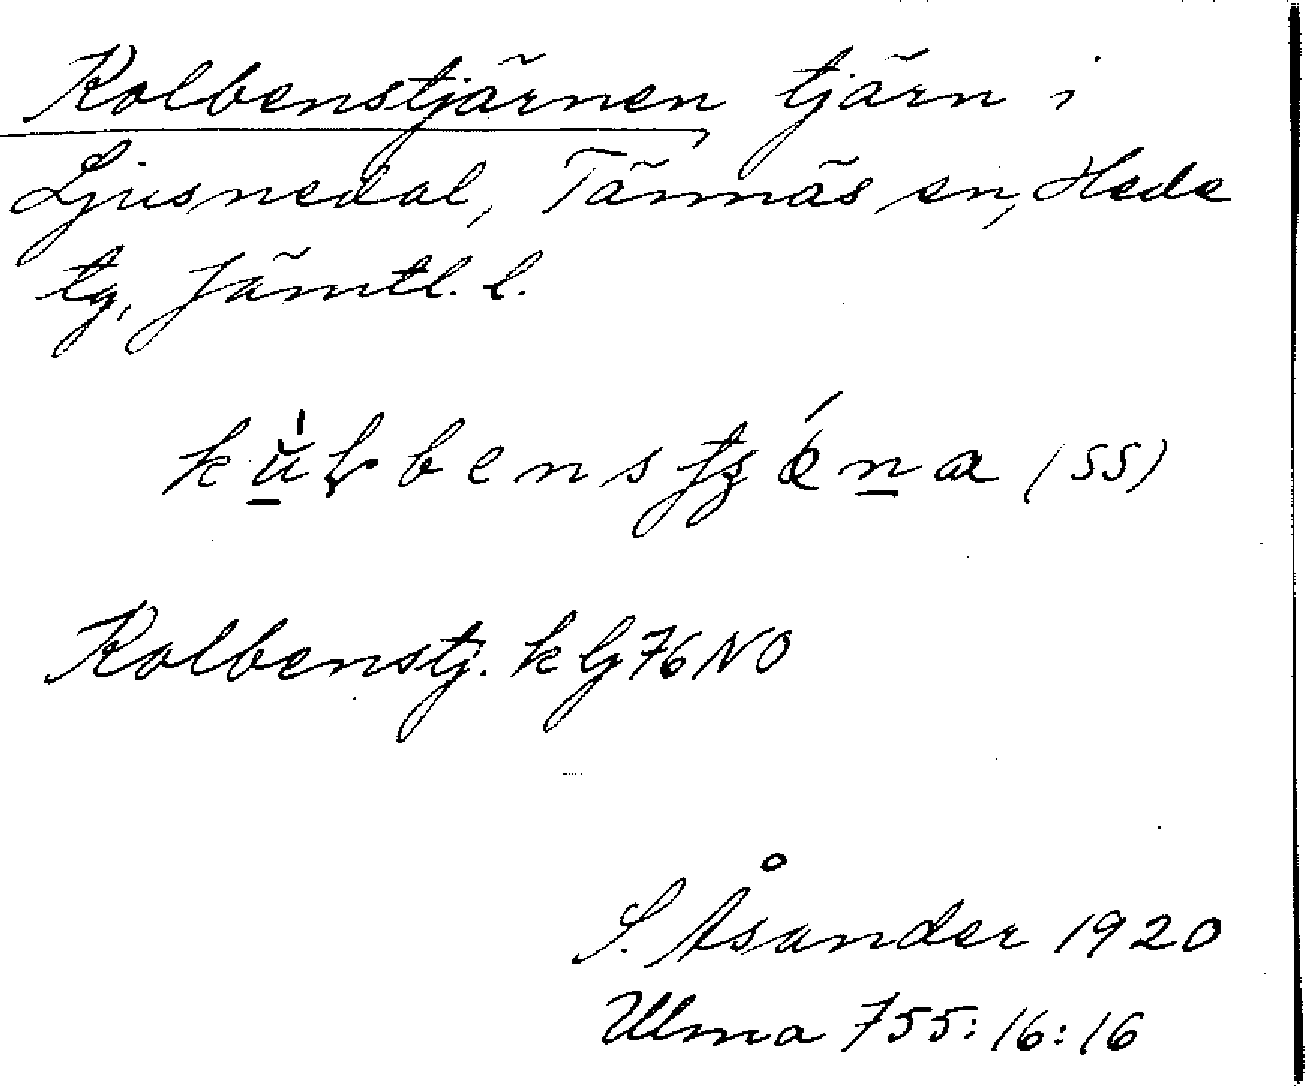 Kolbenstjärnen tjärn i
Ljusnedal, Tännäs sn, Hede
tg, Jämtl. l.
(SS)
Kolbenstj. k lj 76 NO
S. Åsander 1920
Ulma 755:16:16